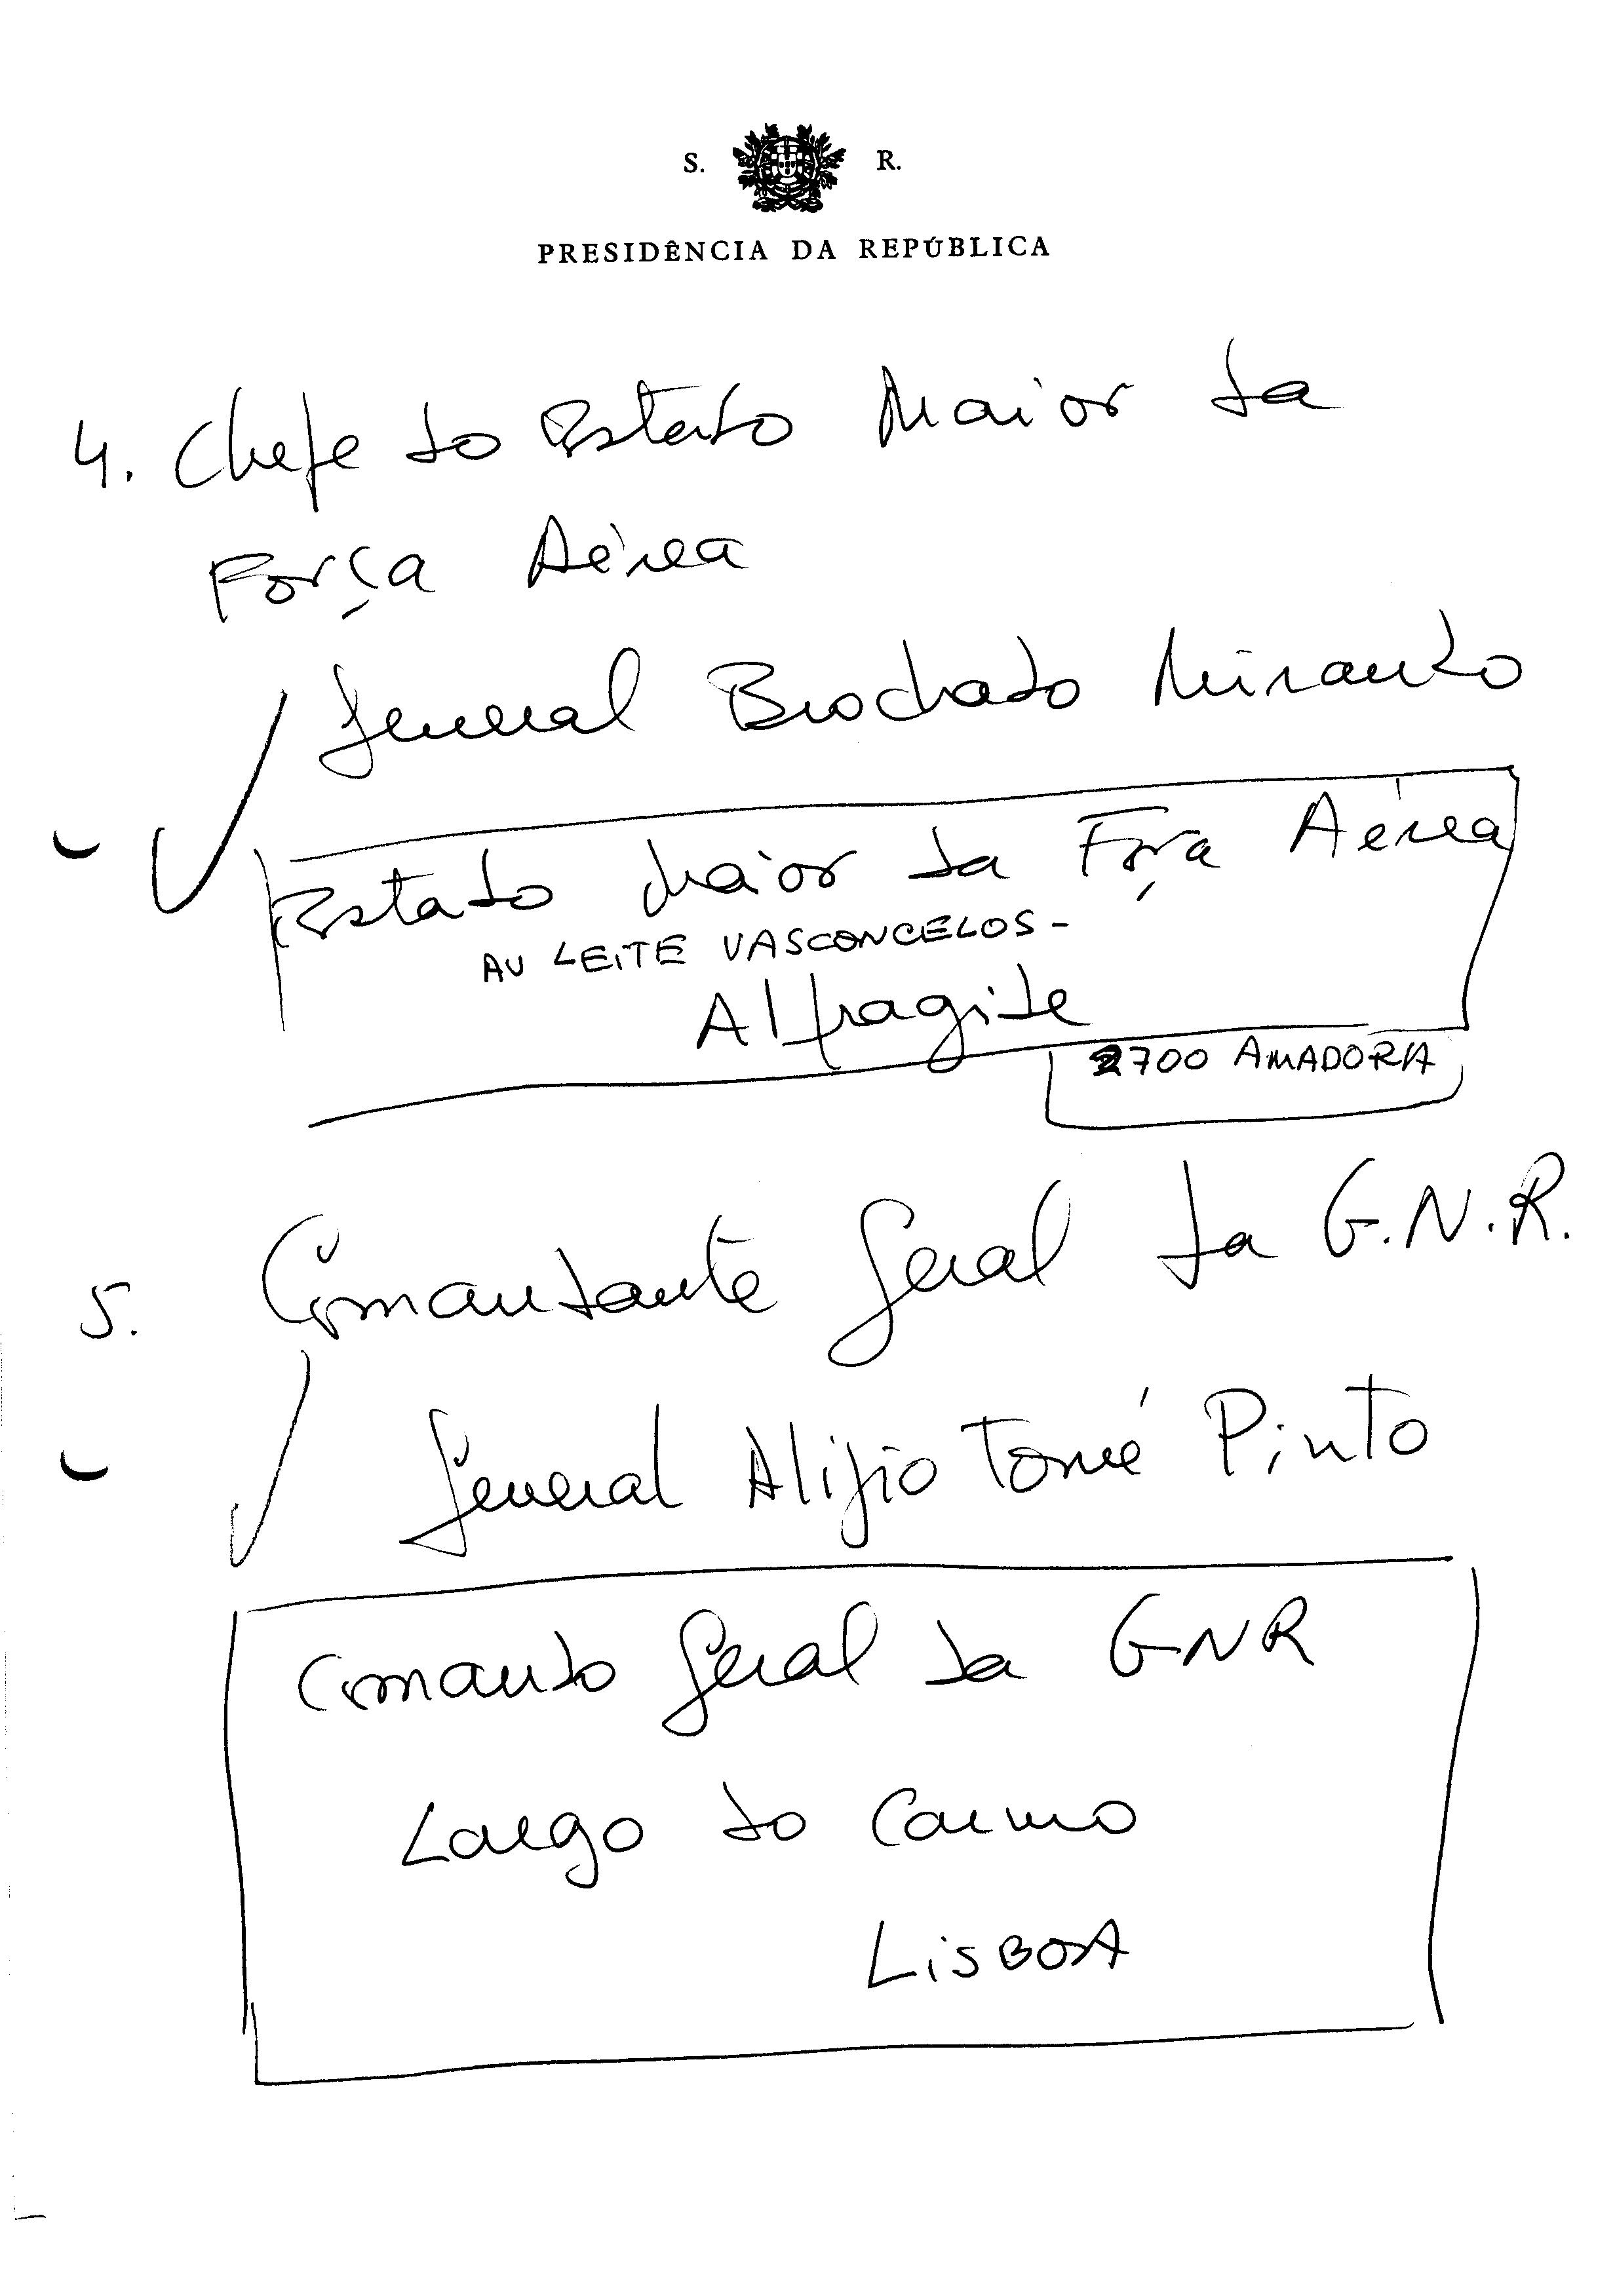 S. R.
PRESIDÊNCIA DA REPÚBLICA
4. Chefe do Estado Maior da
Força Aérea
General Brochado Mirando
Estado Maior da Força Aérea
AV LEITE VASCONCELOS-
Alfragide
2700 AMADORA
5. Comandante Geral da G.N.R.
General Alípio Tomé Pinto
Comando Geral da GNR
Largo do Carmo
LISBOA